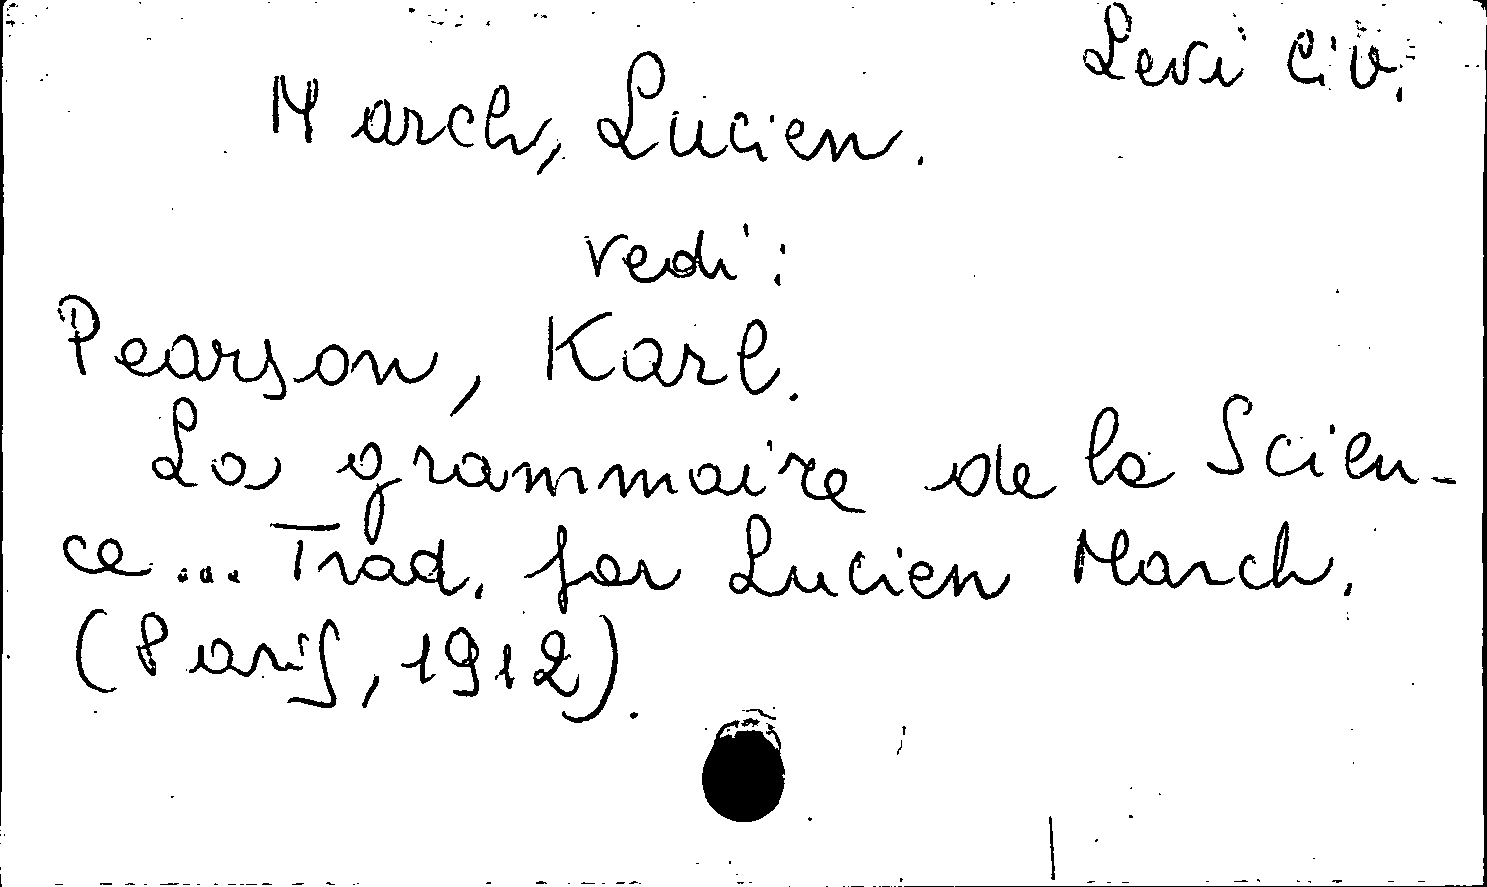 Levi Civ.
March, Lucien.
vedi:
Pearson, Karl.
La grammaire de la Scien-
ce... Trad. par Lucien March.
(Paris, 1912).